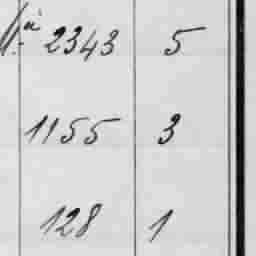 2343 5
1155 3
128 1